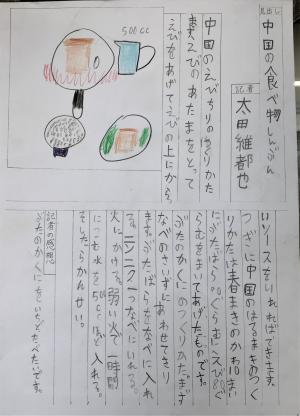 見出し
中国の食べ物しんぶん
記者
太田維都也
500cc
中国のえびちりのつくりかた
えびのあたまをとって
えびをあげてえびの上にから
いソースをいれればできます。
つぎに中国のはるまきのつく
りかたは春まきのかわ10まい
にぶたばら
らむをまいてあげたものです。
ぶたのかくにのつくりかた。まず
なべのさいずにあわせてきり
ます。ぶたばらをなべに入れ
る。ニンニク一つなべにいれる。
火にかける。弱い火で一時間
にこむ水を500ccほど入れる。
そしたらかんせい。
記者の感想
ぶたのかくにをいちどたべたいです。